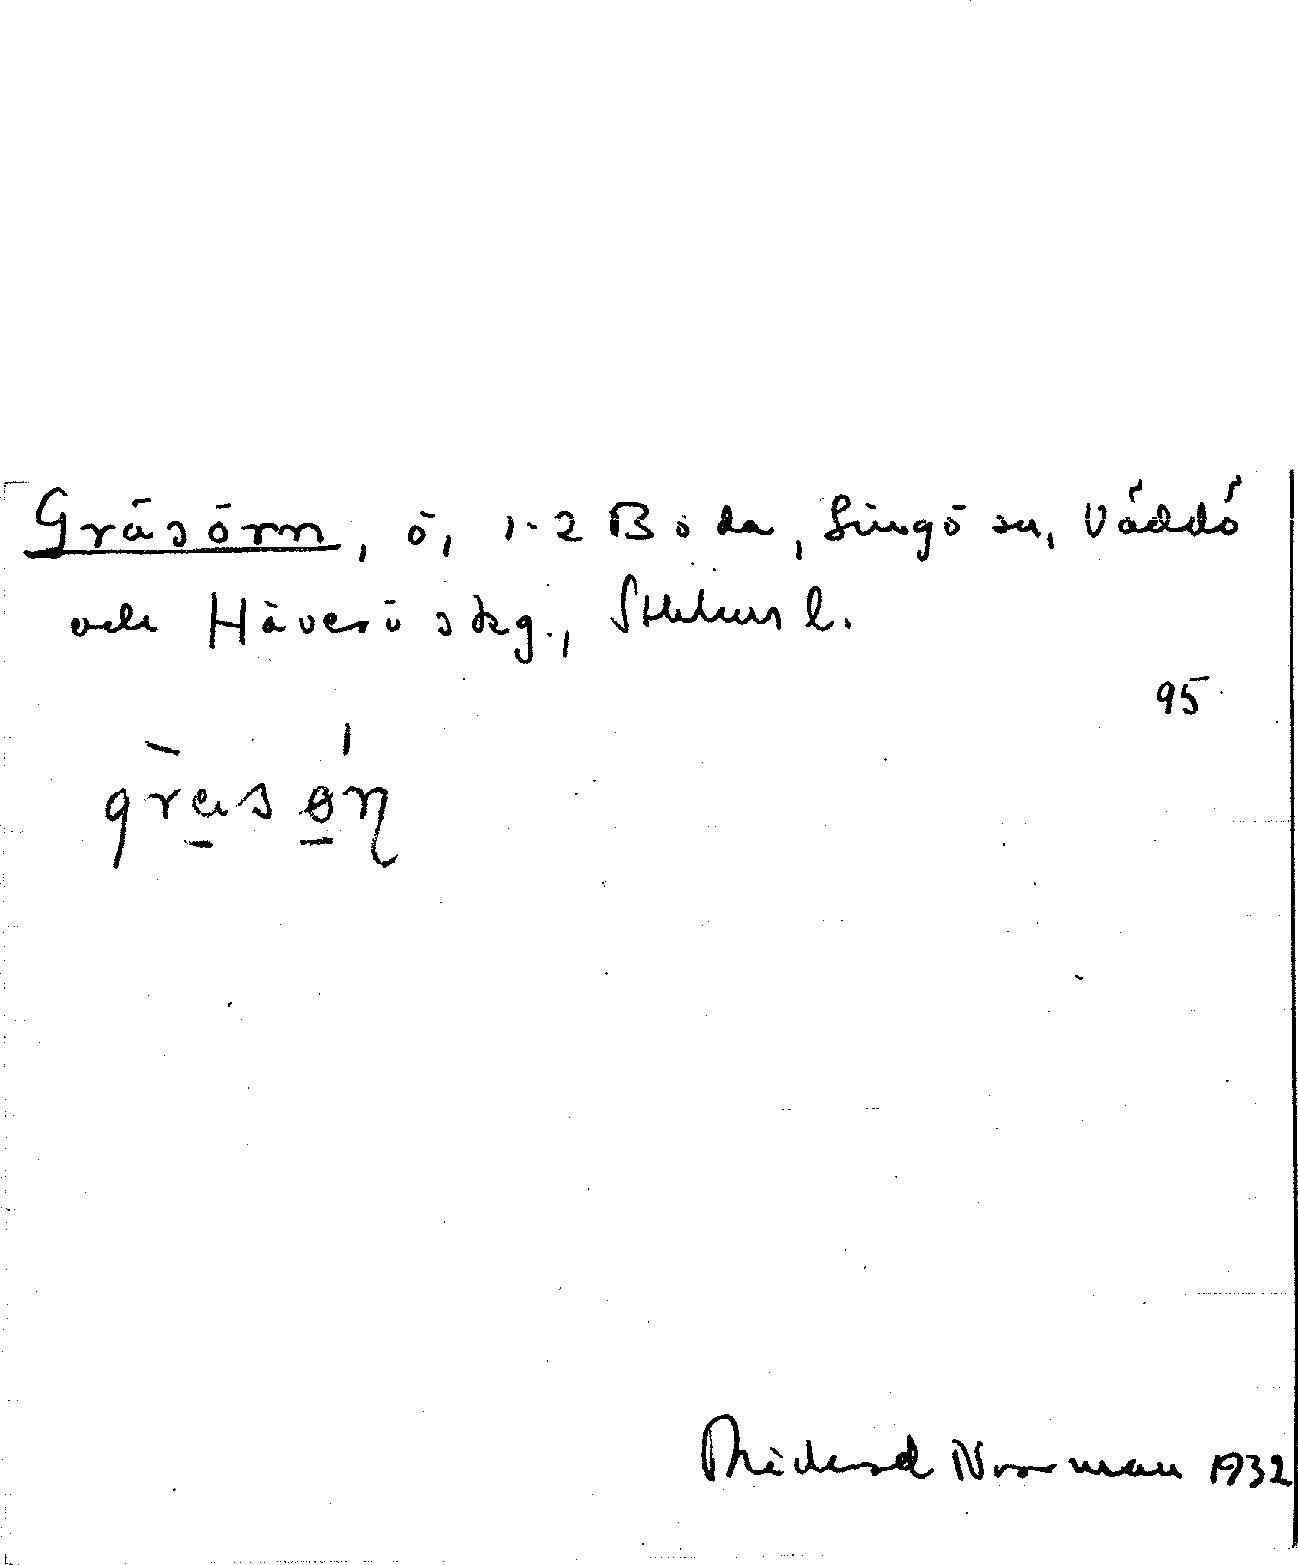 Gräsörn, ö, 1-2 Boda, Singö sn, Väddö
och Häverö skg., Sthlms l.
95
Rickard Norrman 1932